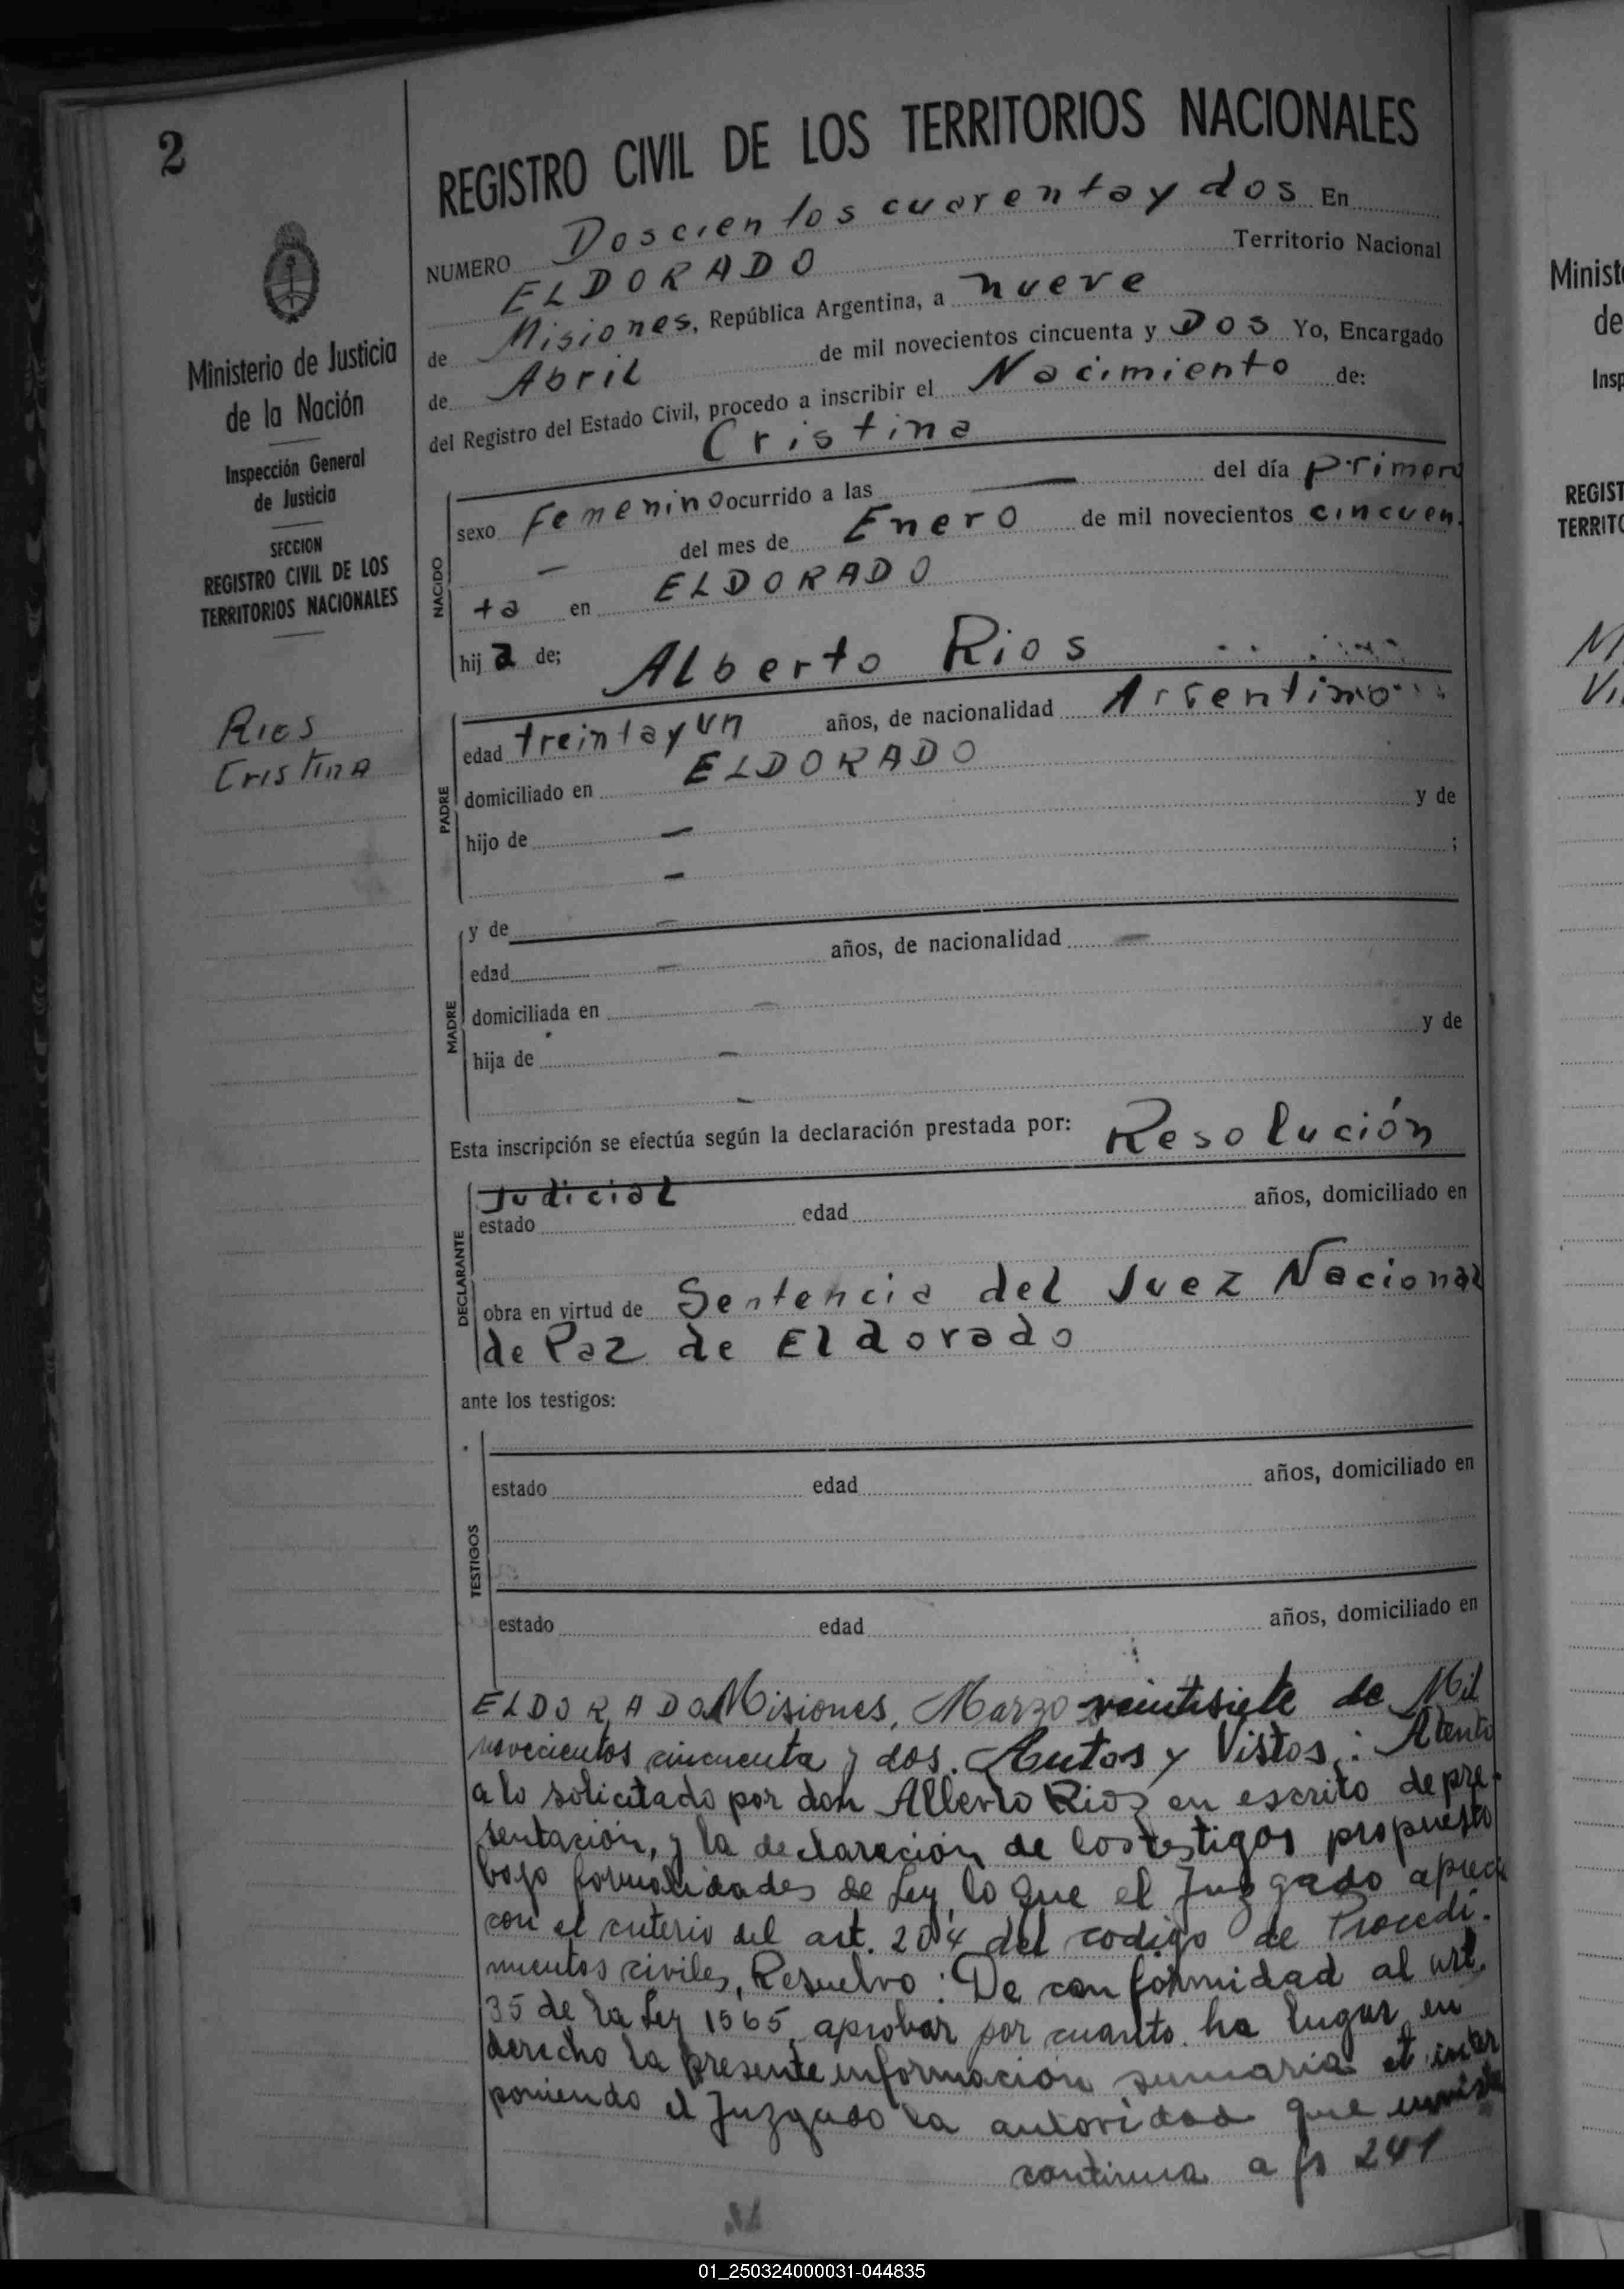 2
REGISTRO CIVIL DE LOS TERRITORIOS NACIONALES
NUMERO Doscientos cuarenta y dos En
ELDORADO Territorio Nacional
de Misiones, República Argentina, a nueve
de Abril de mil novecientos cincuenta y Dos Yo, Encargado
del Registro del Estado Civil, procedo a inscribir el Nacimiento de:
Cristina
Ministerio de Justicia
de la Nación
Inspección General
de Justicia
SECCION
REGISTRO CIVIL DE LOS
TERRITORIOS NACIONALES
Rios
Cristina
NACIDO
sexo Femenino ocurrido a las — del día primero
— del mes de Enero de mil novecientos cincuen
ta en ELDORADO
hija de; Alberto Rios
PADRE
edad treinta y un años, de nacionalidad Argentino
domiciliado en ELDORADO
hijo de — y de
— ;
MADRE
y de —
edad — años, de nacionalidad —
domiciliada en —
hija de — y de
—
Esta inscripción se efectúa según la declaración prestada por: Resolución
DECLARANTE
Judicial
estado edad años, domiciliado en
obra en virtud de Sentencia del Juez Nacional
de Paz de Eldorado
ante los testigos:
TESTIGOS
estado edad años, domiciliado en
estado edad años, domiciliado en
ELDORADO Misiones, Marzo veintisiete de Mil
novecientos cincuenta y dos. Autos y Vistos: Atento
a lo solicitado por don Alberto Rios en escrito de pre-
sentación, y la declaración de los testigos propuesto
bajo formalidades de Ley, lo que el Juzgado aprecia
con el criterio del art. 204 del codigo de Procedi-
mientos civiles, Resuelvo: De conformidad al art.
35 de la Ley 1565, aprobar por cuanto ha lugar en
derecho la presente información sumaria inter
poniendo el Juzgado la autoridad que
continua a fs 241
Minist
de
Insp
REGIST
TERRITO
01_250324000031-044835